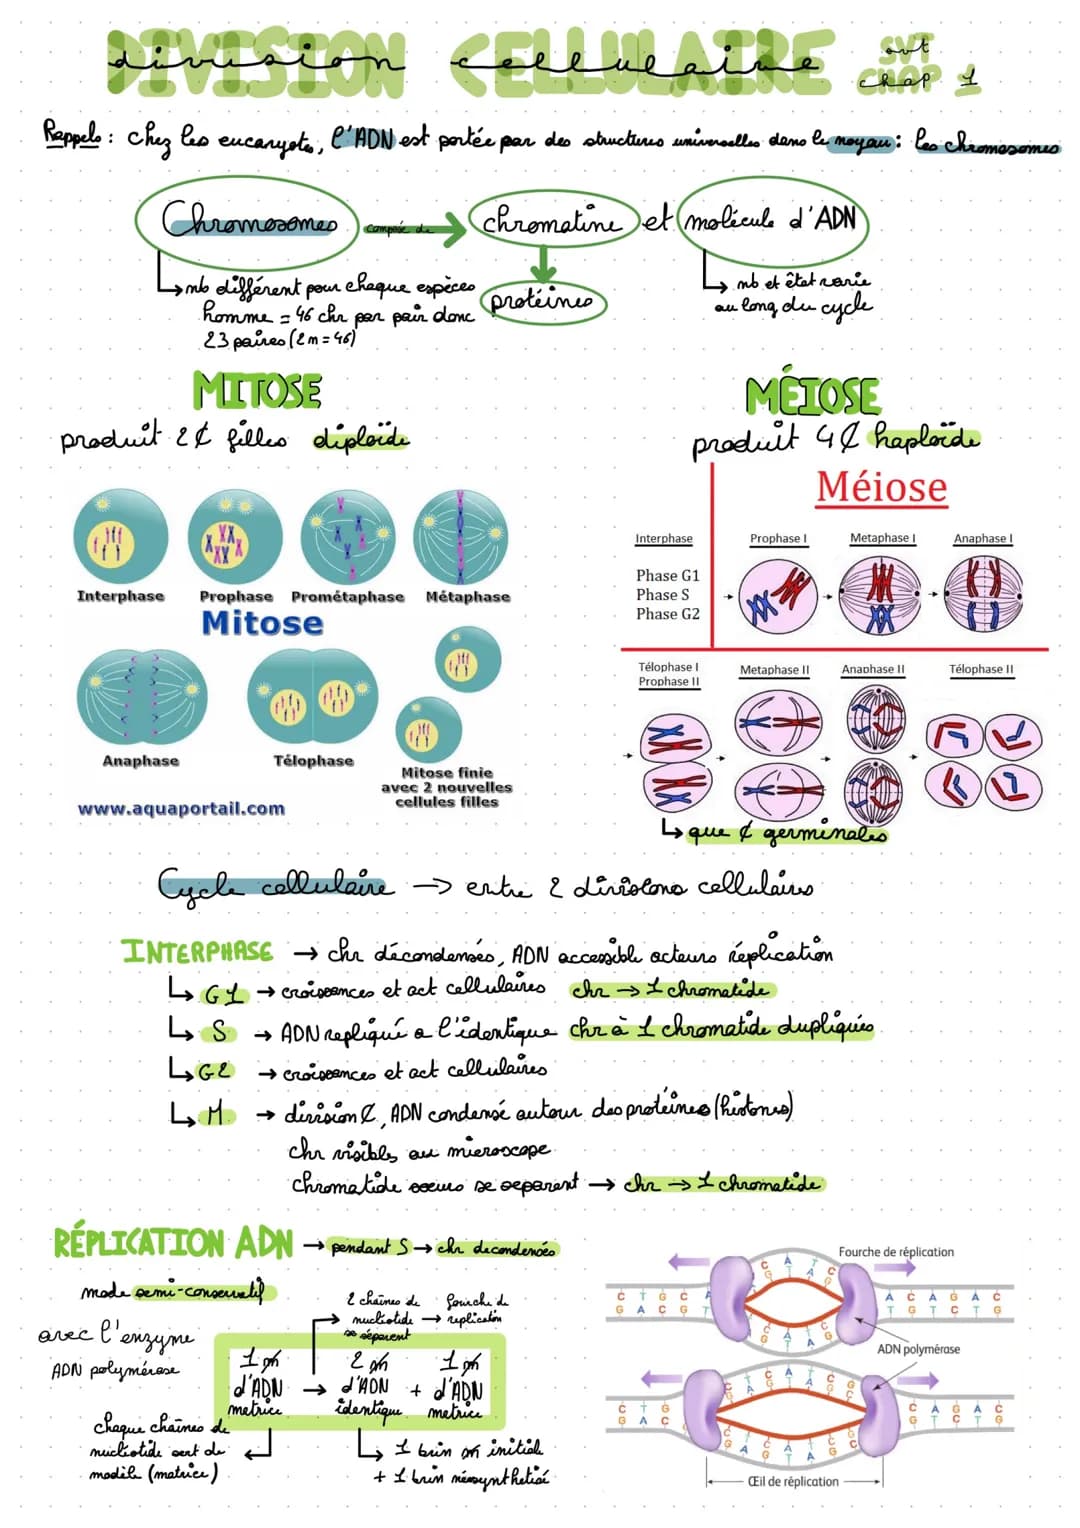 DIVISION CELLULAIRE
division cellulaire
SVT
chap 1
Rappels : chez les eucaryotes, l'ADN est portée par des structures universelles dans le noyau : les chromosomes
Chromosomes composée de chromatine et molécule d'ADN
protéines
nb différent pour chaque espèces
homme = 46 chr par pair donc
23 paires (2n = 46)
nb et état varie
au long du cycle
MITOSE
produit 2 ¢ filles diploïde
Interphase
Prophase
Prométaphase
Métaphase
Mitose
Anaphase
Télophase
Mitose finie
avec 2 nouvelles
cellules filles
www.aquaportail.com
MÉIOSE
produit 4 ¢ haploïde
Méiose
Interphase
Phase G1
Phase S
Phase G2
Prophase I
Metaphase I
Anaphase I
Télophase I
Prophase II
Metaphase II
Anaphase II
Télophase II
↳ que ¢ germinales
Cycle cellulaire → entre 2 divisions cellulaires
INTERPHASE → chr décondensés, ADN accessible acteurs réplication
↳ G1 → croissances et act cellulaires chr → 1 chromatide
↳ S → ADN repliqué a l'identique chr à 1 chromatide dupliqués
↳ G2 → croissances et act cellulaires
↳ M → division ¢, ADN condensé autour des protéines (histones)
chr visibles au microscope
Chromatide soeurs se separent → chr → 1 chromatide
RÉPLICATION ADN → pendant S → chr decondensés
mode semi-conservatif
avec l'enzyme
ADN polymérase
2 chaînes de
nucléotide
se séparent
→ fourche de
replication
1 m
d'ADN
metrice
→ 2 m
d'ADN
identique
+ 1 m
d'ADN
metrice
chaque chaînes de
nucléotide sert de
modèle (matrice)
↳ 1 brin m initial
+ 1 brin néosynthetisé
Fourche de réplication
C T G C A
G A C G T
A C A G A C
T G T C T G
ADN polymérase
C T G
G A C
C A G A C
G T C T G
Œil de réplication